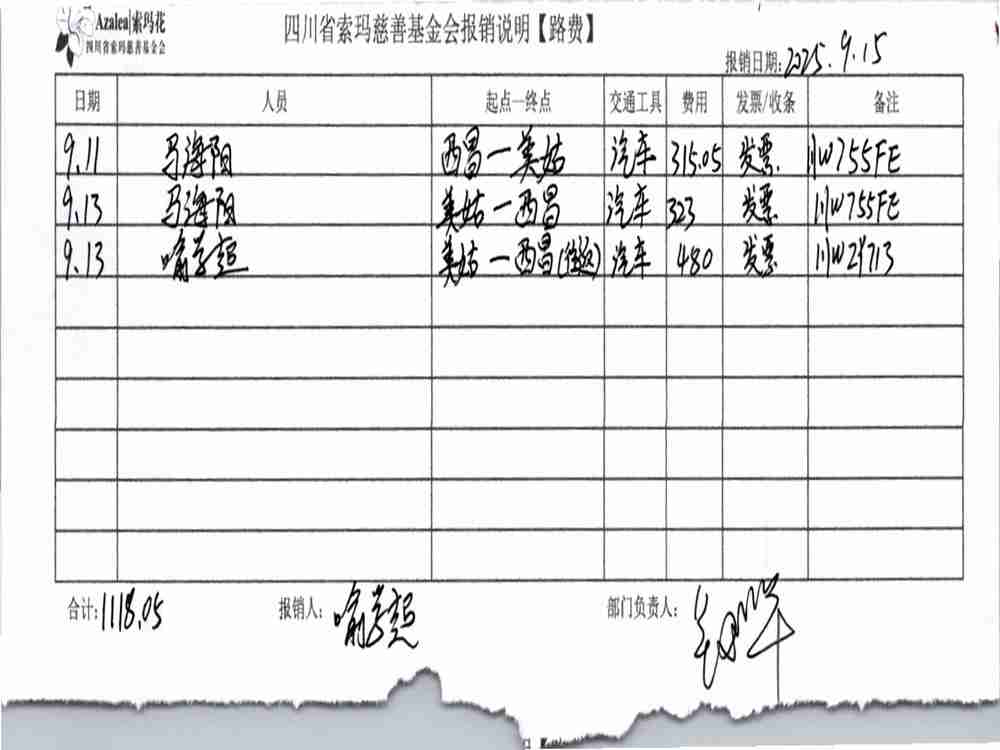 Azalea|索玛花
四川省索玛慈善基金会
四川省索玛慈善基金会报销说明【路费】
报销日期: 2025.9.15
日期 人员 起点一终点 交通工具 费用 发票/收条 备注
9.11 马海阳 西昌一美姑 汽车 315.05 发票. 川W755FE
9.13 马海阳 美姑一西昌 汽车 323 发票 川W755FE
9.13 喻学超 美姑一西昌(往返) 汽车 480 发票 川W2Y713
合计: 1118.05 报销人: 喻学超 部门负责人: